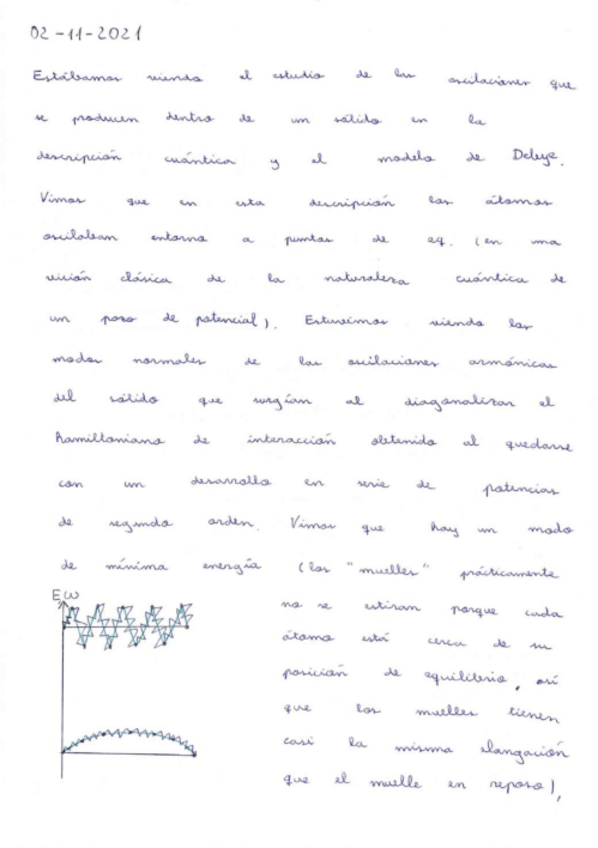 02-11-2021
Estábamos viendo el estudio de las oscilaciones que
se producen dentro de un sólido en la
descripción cuántica y el modelo de Debye.
Vimos que en esta descripción los átomos
oscilaban entorno a puntos de eq. (en una
visión clásica de la naturaleza cuántica de
un pozo de potencial). Estuvimos viendo los
modos normales de las oscilaciones armónicas
del sólido que surgían al diagonalizar el
hamiltoniano de interacción obtenido al quedarse
con un desarrollo en serie de potencias
de segundo orden. Vimos que hay un modo
de mínima energía (los "muelles" prácticamente
no se estiran porque cada
átomo está cerca de su
posición de equilibrio, así
que los muelles tienen
casi la misma elongación
que el muelle en reposo),
E ω